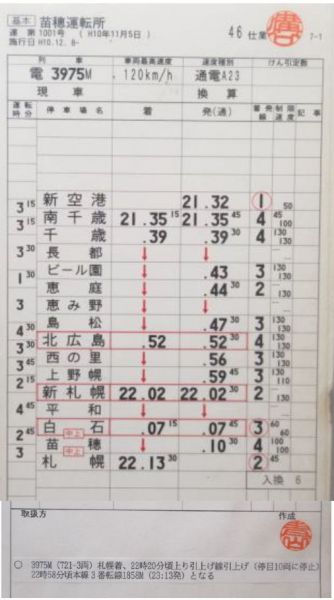 基本 苗穂運転所
運 第 1001号 ( H10年11月5日 ) 46 仕業 7-1
施行日 H10.12. 8-
列車 車両最高速度 速度種別 けん引定数
電 3975M .120km/h 通電A23
現車 換算
運転時分 停車場名 着 発(通) 着発線 制限速度 記事
新空港 21.32 1 50
3 15 南千歳 21.35 15 21.35 45 4 45 100
3 15 千歳 .39 .39 30 4 130 130
3 30 長都 ↓ ↓
1 30 ビール園 ↓ .43 3 130 130
恵庭 ↓ .44 30 2 130
3 恵み野 ↓ ↓
島松 ↓ .47 30 3 130 130
4 30 北広島 .52 .52 30 4 130 130
3 30 西の里 ↓ .56 3 130 130
2 15 上野幌 ↓ .59 45 3 130 110
新札幌 22.02 22.02 30 2 130
4 45 平和 ↓ ↓
白石 中上 .07 15 .07 45 3 60 60
2 45 苗穂 中上 ↓ .10 30 4 100 100
3 札幌 22.13 30 2 45
入換 6
取扱方 作成
○ 3975M (721-3両) 札幌着、22時20分頃上り引上げ線引上げ (停目10両に停止)
22時58分頃本線3番転線1858M (23:13発) となる